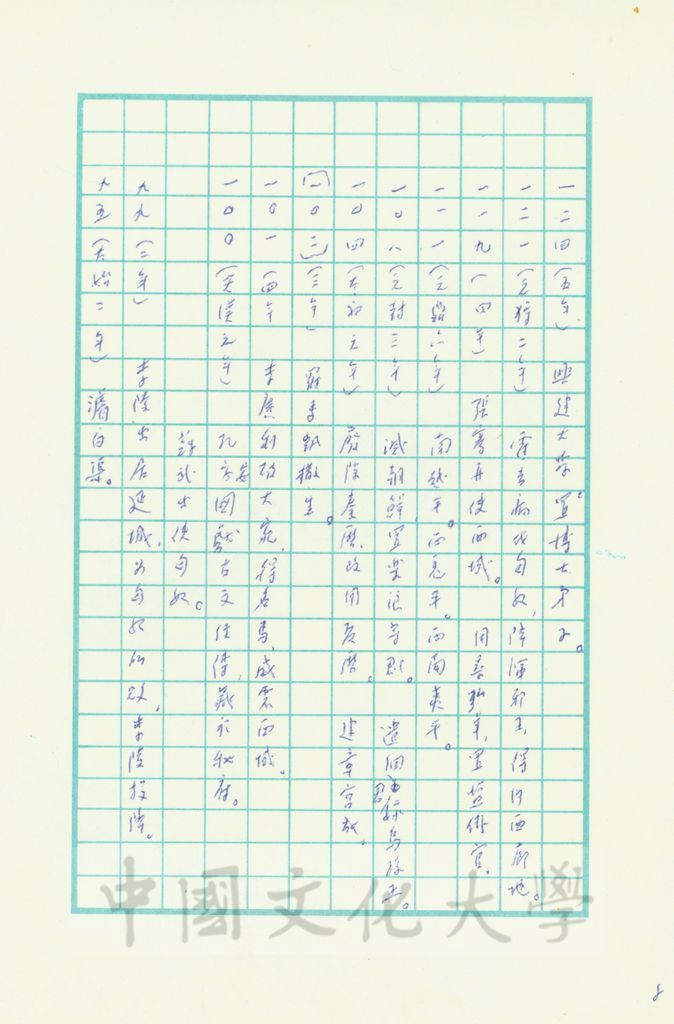 一二四(五年) 興建大学,置博士弟子。
一二一(元狩二年) 霍去病伐匈奴,降渾邪王得河西廊地。
一一九(四年) 張騫再使西域。 用桑弘羊,置塩鉄官。
一一一(元鼎六年) 南越平。西羌平。西南夷平。
一〇八(元封三年) 滅朝鮮,置楽浪等郡。 遣細君嫁烏孫王。
一〇四(太初元年) 廢除秦曆,改用夏曆。 建章宮成。
(一〇二)(三年) 羅馬凱撒生。
一〇一(四年) 李廣利破大宛,得名馬,威震西域。
一〇〇(天漢元年) 孔安国獻古文経傳,藏於秘府。
蘇武出使匈奴。
九九(二年) 李陵出居延城,為匈奴所敗,李陵投降。
九五(太始二年) 濬白渠。
中國文化大學
8